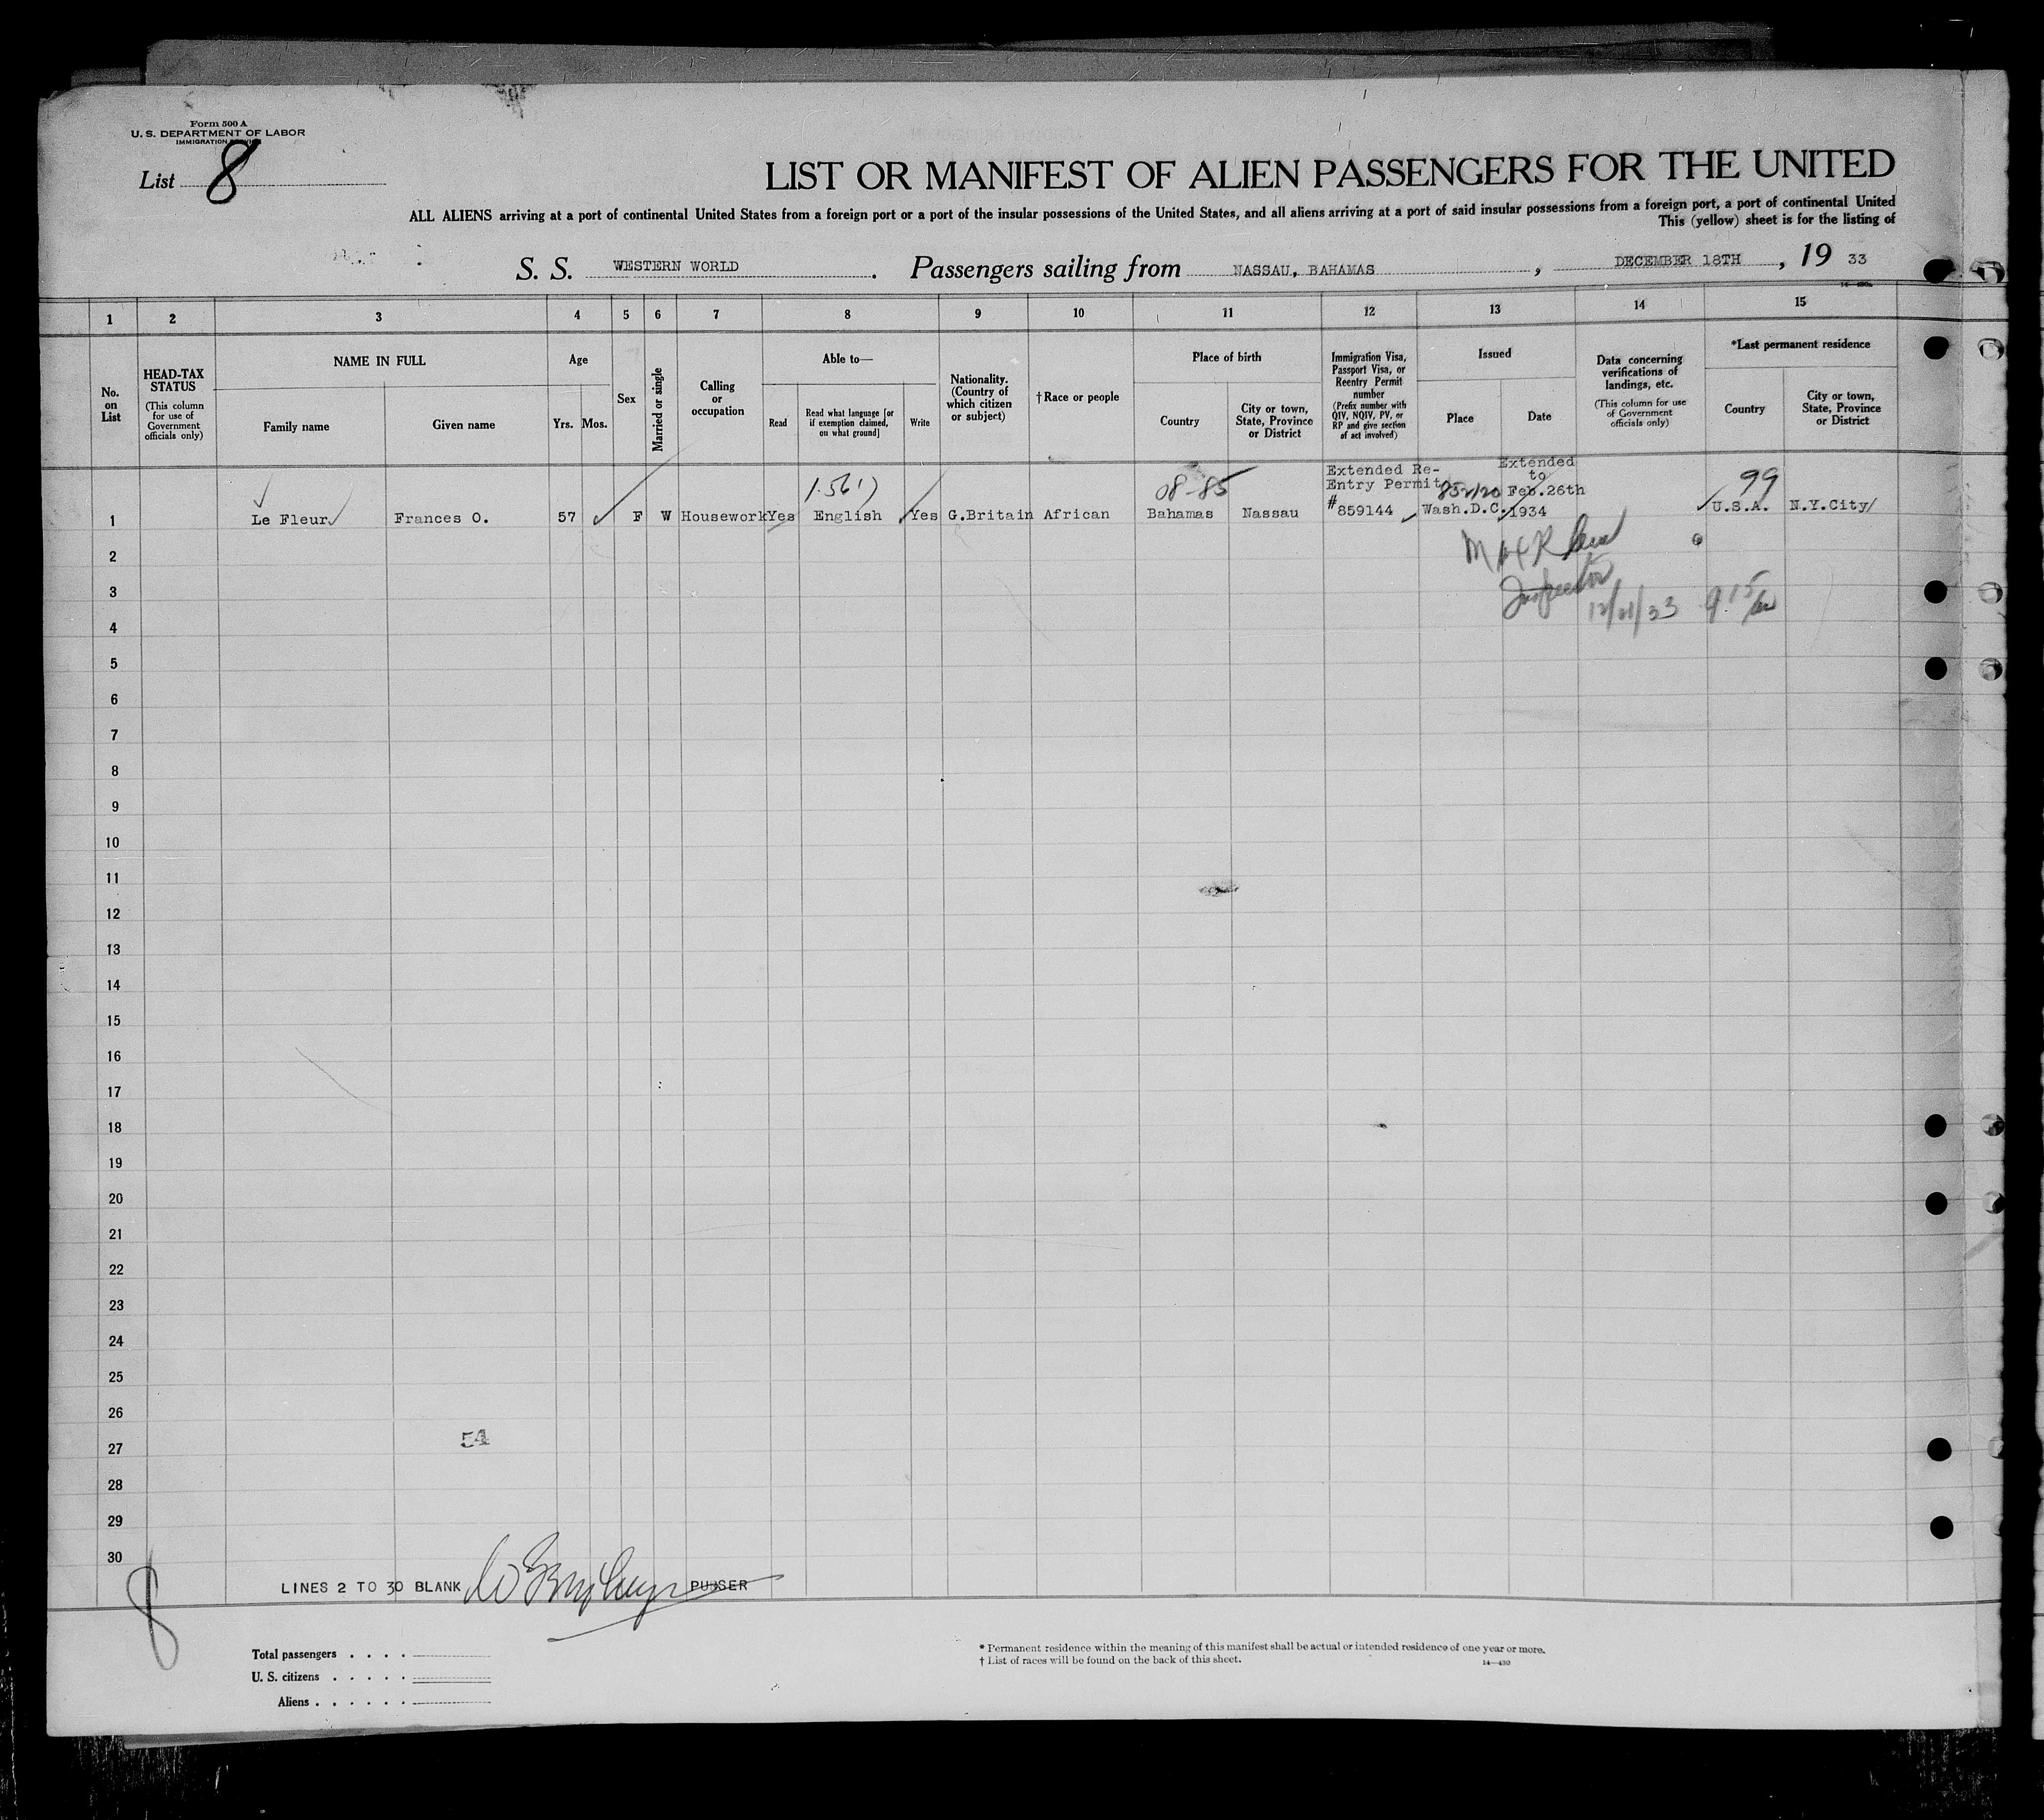 Form 500 A
U. S. DEPARTMENT OF LABOR
IMMIGRATION SERVICE
List 8
LIST OR MANIFEST OF ALIEN PASSENGERS FOR THE UNITED
ALL ALIENS arriving at a port of continental United States from a foreign port or a port of the insular possessions of the United States, and all aliens arriving at a port of said insular possessions from a foreign port, a port of continental United
This (yellow) sheet is for the listing of
S. S. WESTERN WORLD . Passengers sailing from NASSAU, BAHAMAS , DECEMBER 18TH , 19 33
1 2 3 4 5 6 7 8 9 10 11 12 13 14 15
No. on List
HEAD-TAX STATUS
(This column for use of Government officials only)
NAME IN FULL
Family name Given name
Age
Yrs. Mos.
Sex
Married or single
Calling or occupation
Able to—
Read
Read what language [or if exemption claimed, on what ground]
Write
Nationality. (Country of which citizen or subject)
† Race or people
Place of birth
Country
City or town, State, Province or District
Immigration Visa, Passport Visa, or Reentry Permit number
(Prefix number with QIV, NQIV, PV, or RP and give section of act involved)
Issued
Place Date
Data concerning verifications of landings, etc.
(This column for use of Government officials only)
*Last permanent residence
Country
City or town, State, Province or District
08-85 99
Extended Re- Extended
Entry Permit to
Feb.26th
1 Le Fleur Frances O. 57 F W Housework Yes English Yes G.Britain African Bahamas Nassau #859144 Wash.D.C. 1934 U.S.A. N.Y.City
2
Inspector
3
12/21/33 9 15
4
5
6
7
8
9
10
11
12
13
14
15
16
17
18
19
20
21
22
23
24
25
26
27
54
28
29
30
LINES 2 TO 30 BLANK PURSER
8
Total passengers . . . .
U. S. citizens . . . . .
Aliens . . . . . .
* Permanent residence within the meaning of this manifest shall be actual or intended residence of one year or more.
† List of races will be found on the back of this sheet.
14—430